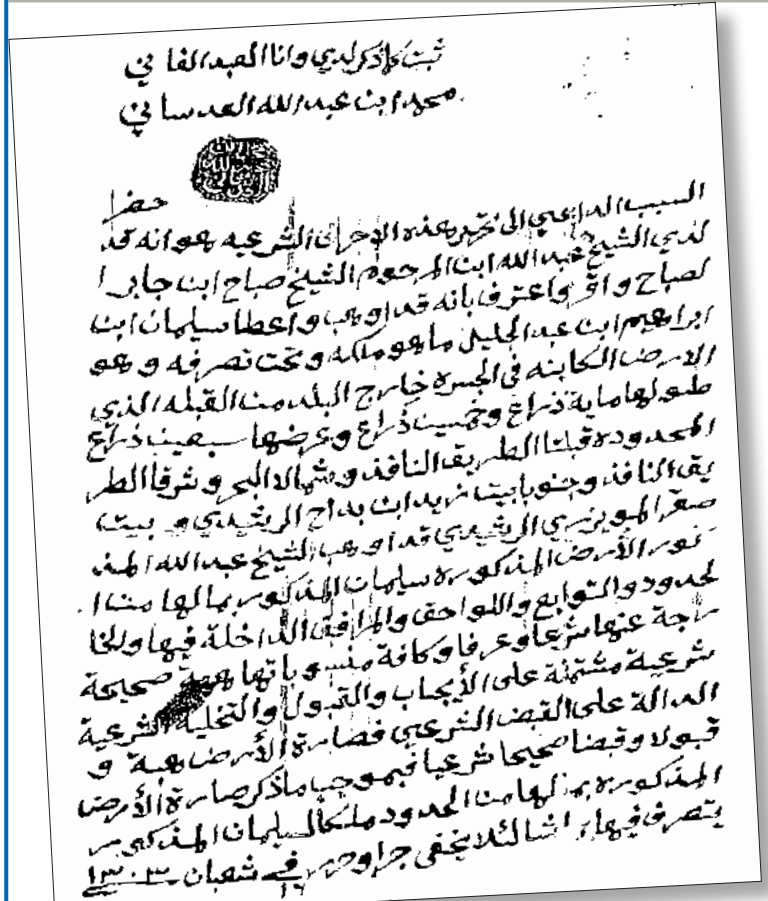 ثبت كما ذكر لدي وانا العبد الفاني
محمد ابن عبد الله العدساني
السبب الداعي الى تحرير هذه الاحرف الشرعيه هو انه قد حضر
لدي الشيخ عبد الله ابن المرحوم الشيخ صباح ابن جابر ا
لصباح واقر واعترف بانه قد اوهب واعطا سليمان ابن
ابراهيم ابن عبد الجليل ما هو ملكه وتحت تصرفه وهو
الارض الكاينه في الجسره خارج البلد من القبله الذي
طولها ماية ذراع وخمسين ذراع وعرضها سبعين ذراع
المحدوده قبلتا الطريق النافذ وشمالا البحر وشرقا الطر
يق النافذ وجنوبا بيت زيد ابن بداح الرشيدي وبيت
صقر المويزري الرشيدي قد اوهب الشيخ عبد الله المذ
كور الأرض المذكوره سليمان المذكور بما لها من ا
لحدود والتوابع واللواحق والمرافق الداخلة فيها والخا
رجة عنها شرعا وعرفا وكافة منسوباتها هبة صحيحة
شرعية مشتملة على الأيجاب والقبول والتخلية الشرعية
الدالة على القبض الشرعي فصارة الأرض هبة و
قبولا وقبضا صحيحا شرعيا فبموجب ما ذكر صارة الأرض
المذكوره بما لها من الحدود ملكا لسليمان المذكور
يتصرف فيها شا لئلا يخفى جرا وحرر في ١٦ شعبان ١٣٠٣